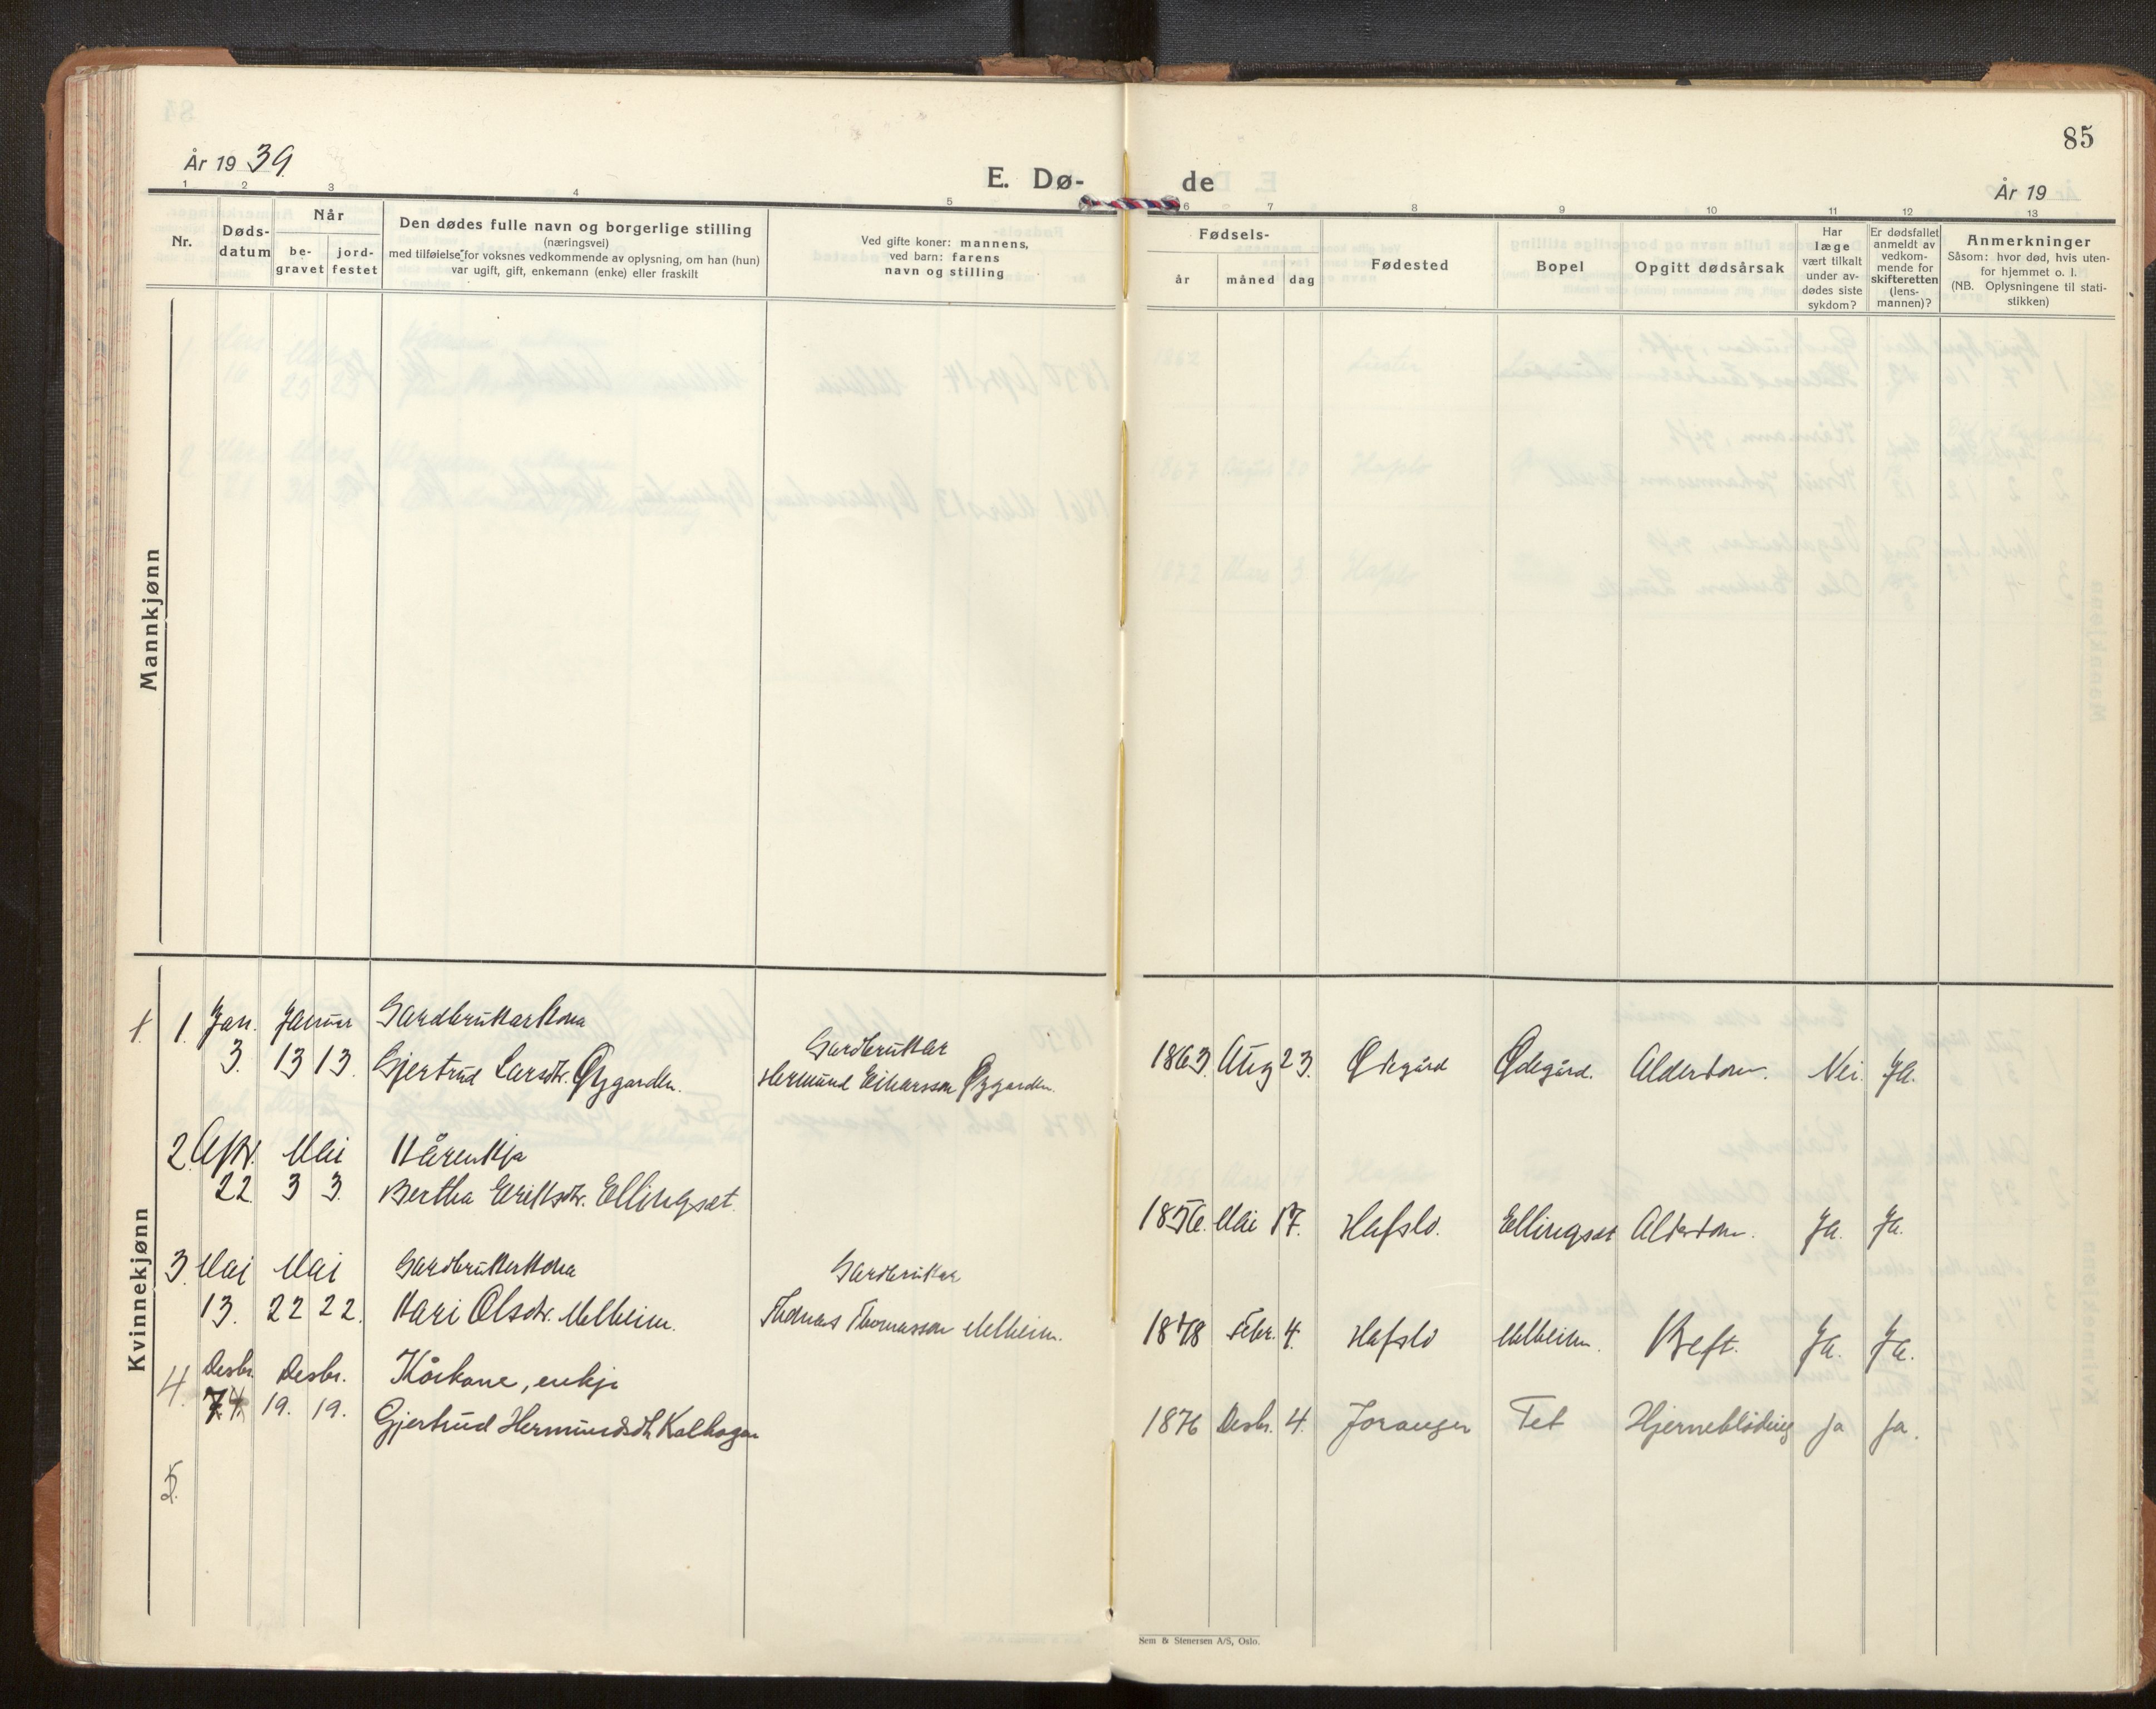 85
År 19 39.
E. Dø-
de
År 19
1 2 3 4 5 6 7 8 9 10 11 12 13
Nr.
Døds-
datum
Når
be-
gravet
jord-
festet
Den dødes fulle navn og borgerlige stilling
(næringsvei)
med tilføielse for voksnes vedkommende av oplysning, om han (hun)
var ugift, gift, enkemann (enke) eller fraskilt
Ved gifte koner: mannens,
ved barn: farens
navn og stilling
Fødsels-
år
måned
dag
Fødested
Bopel
Opgitt dødsårsak
Har
læge
vært tilkalt
under av-
dødes siste
sykdom?
Er dødsfallet
anmeldt av
vedkom-
mende for
skifteretten
(lens-
mannen)?
Anmerkninger
Såsom: hvor død, hvis uten-
for hjemmet o. l.
(NB. Oplysningene til stati-
stikken)
Mannkjønn
Kvinnekjønn
1. Jan. Januar Gardbrukarkona
Gardbrukar
3. 13 13. Gjertrud Larsdtr. Øygarden. Hermund Einarsson Øygarden. 1863. Aug 23. Ødegård Ødegård. Alderdom. Nei. Ja.
2. Apr. Mai Kårenkja
22 3 3. Bertha Eriksdtr. Ellingsæt. 1856. Mai 17. Hafslo. Ellingsæt Alderdom. Ja. Ja.
3. Mai Mai Gardbrukerkona Gardbrukar
13. 22 22. Kari Olsdtr. Melheim. Thomas Thomasson Melheim. 1878 Febr. 4. Hafslo Melheim. Kreft. Ja. Ja.
4. Desbr. Desbr. Kårkone, enkje
7. 19. 19. Gjertrud Hermundsdtr. Kalhagen 1876 Desbr. 4. Joranger Tet Hjerneblöding Ja Ja.
5.
Sem & Stenersen A/S, Oslo.